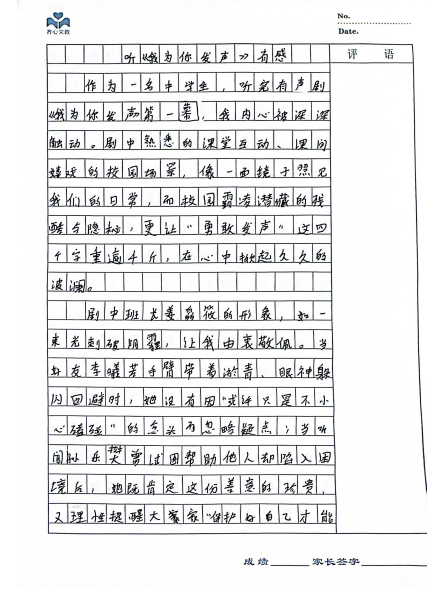 齐心文教
No.
Date.
听《我为你发声》有感
评 语
作为一名中学生，听完有声剧
《我为你发声》第一幕，我内心被深深
触动。剧中熟悉的课堂互动、课间
嬉戏的校园场景，像一面镜子照见
我们的日常，而校园霸凌潜藏的残
酷与隐秘，更让“勇敢发声”这四
个字重逾千斤，在心中掀起久久的
波澜。
剧中班长姜磊筱的形象，如一
束光刺破阴霾，让我由衷敬佩。当
好友李曦芳手臂带着淤青、眼神躲
闪回避时，她没有因“或许只是不小
心磕碰”的念头而忽略疑点；当听
闻孙乐 曾试图帮助他人却陷入困
境后，她既肯定这份善意的珍贵，
又理性提醒大家家“保护好自己才能
成绩 家长签字